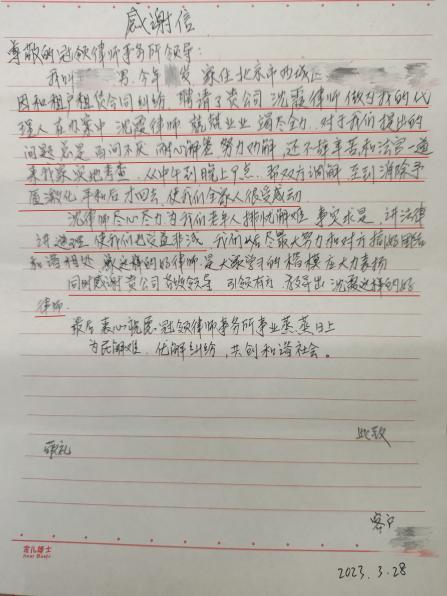 感谢信
尊敬的冠领律师事务所领导:
我叫 男.今年 岁 家住北京市西城区
因和租户租赁合同纠纷.聘请了贵公司沈霞律师做为我的代
理人在办案中沈霞律师兢兢业业 竭尽全力.对于我们提出的
问题总是百问不厌 耐心解答 努力功解,还不辞辛苦和法官一道
来我家实地考查,从中午到晚上9点.帮双方调解 至到消除矛
盾激化 平和后才回去.使我们全家人很受感动
沈律师尽心尽力为我们老年人排忧解难 事实求是.讲法律
讲道理 使我们受益非浅 我们以后尽最大努力和对方搞好团结
和谐相处 象这样的好律师是大家学习的楷模应大力表扬
同时感谢贵公司首次领导 引领有方.教导出沈霞这样的好
律师.
最后衷心祝愿:冠领律师事务所事业蒸蒸日上
为民解难.化解纠纷,共创和谐社会。
此致
敬礼
客户
2023.3.28